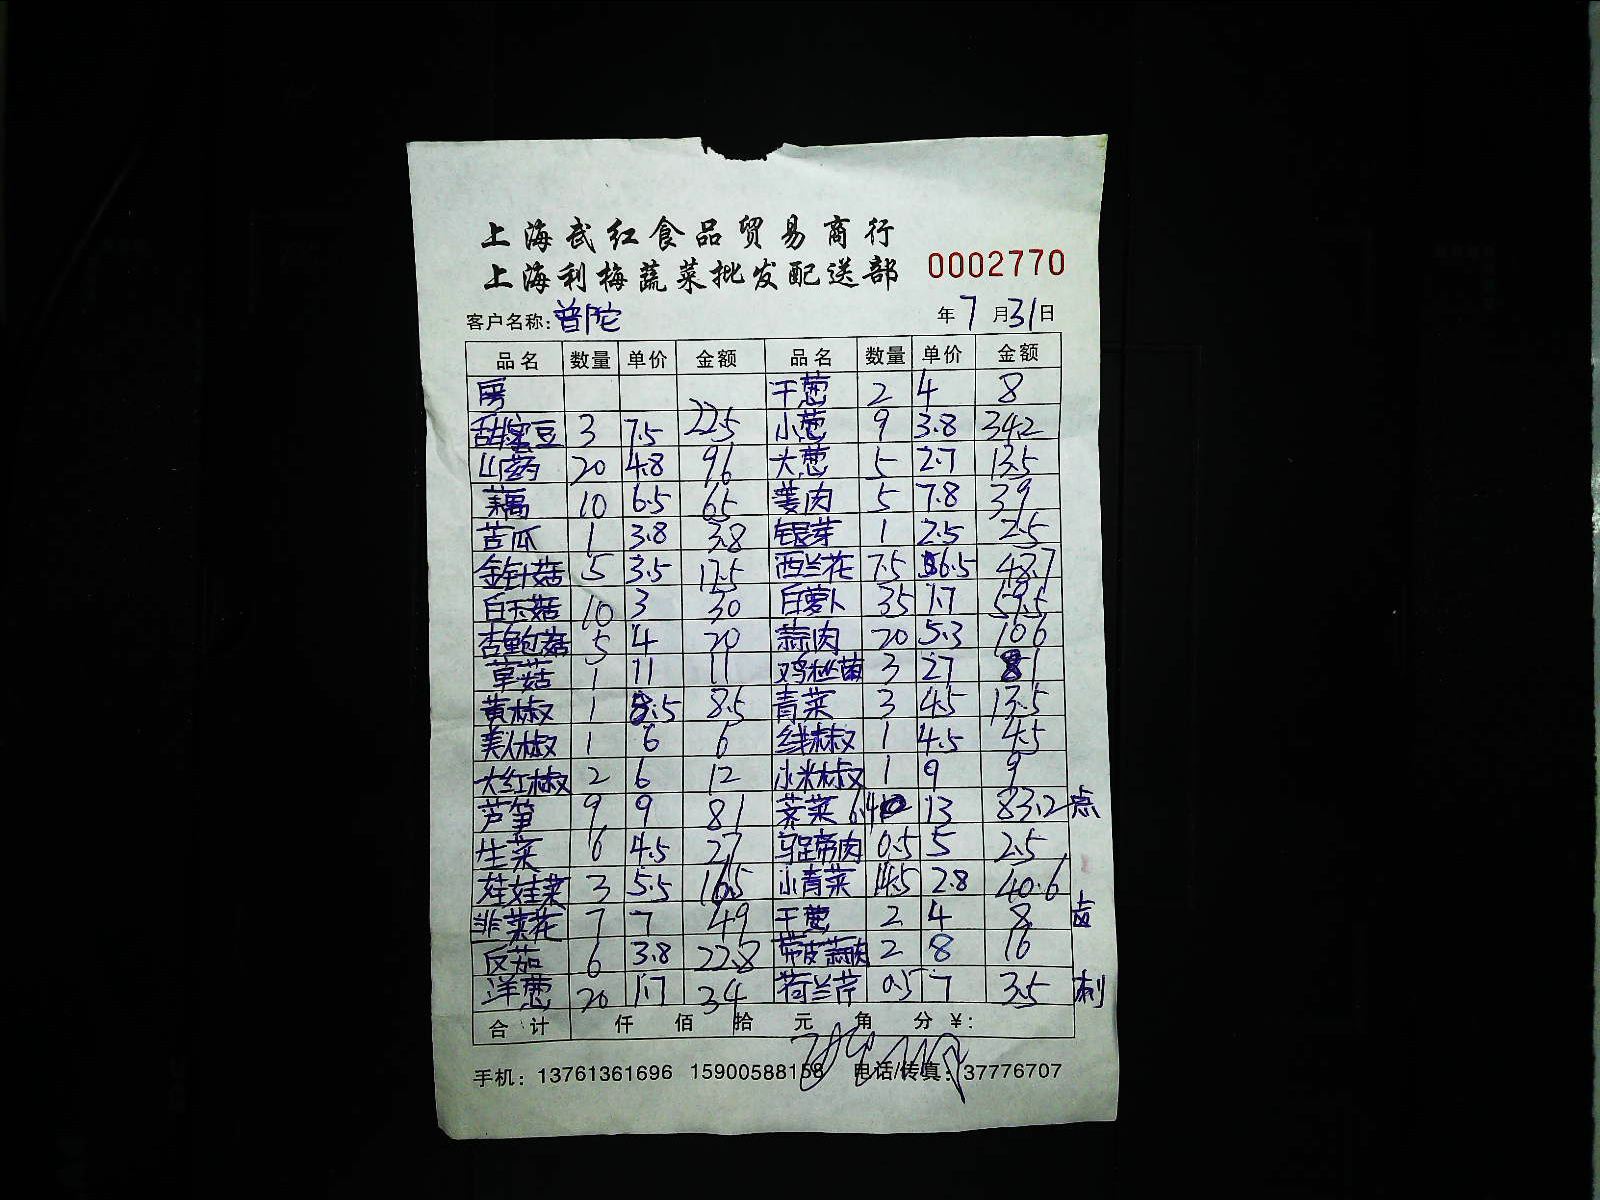 上海武红食品贸易商行
上海利梅蔬菜批发配送部 0002770
客户名称：普陀 年 7 月 31 日
品名 数量 单价 金额 品名 数量 单价 金额
房 干葱 2 4 8
甜蜜豆 3 7.5 22.5 小葱 9 3.8 34.2
山药 20 4.8 96 大葱 5 2.7 13.5
藕 10 6.5 65 姜肉 5 7.8 39
苦瓜 1 3.8 3.8 银芽 1 2.5 2.5
金针菇 5 3.5 17.5 西兰花 7.5 6.5 48.7
白玉菇 10 3 30 白萝卜 35 1.7 59.5
杏鲍菇 5 4 20 蒜肉 20 5.3 106
草菇 1 11 11 鸡枞菌 3 27 81
黄椒 1 8.5 8.5 青菜 3 4.5 13.5
美人椒 1 6 6 线椒 1 4.5 4.5
大红椒 2 6 12 小米椒 1 9 9
芦笋 9 9 81 荠菜 6.4 13 83.2 点
生菜 6 4.5 27 马蹄肉 0.5 5 2.5
娃娃菜 3 5.5 16.5 小青菜 14.5 2.8 40.6
韭菜花 7 7 49 干葱 2 4 8 卤
反茄 6 3.8 22.8 带皮蒜肉 2 8 16
洋葱 20 1.7 34 荷兰芹 0.5 7 3.5 刺
合计 仟 佰 拾 元 角 分 ¥：
手机：13761361696 15900588158 电话/传真：37776707